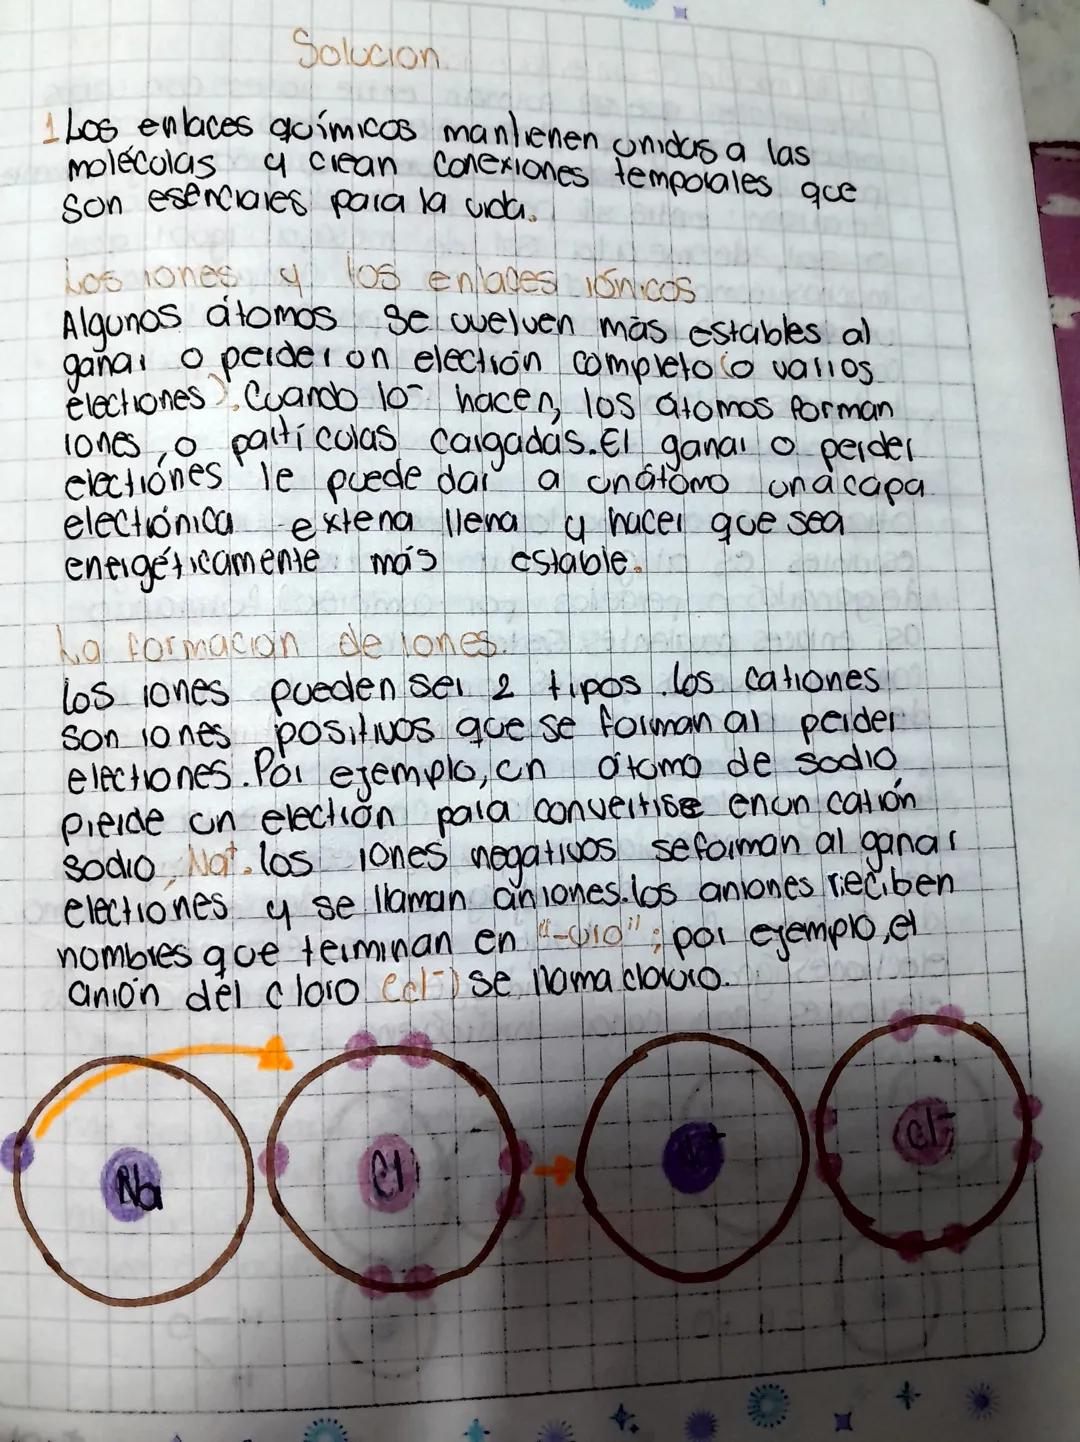 Solucion.
1 Los enlaces químicos mantienen unidas a las
moléculas y crean conexiones temporales que
son esenciales para la vida.
Los iones y los enlaces iónicos
Algunos átomos se vuelven más estables al
ganar o perder un electrón completo (o varios
electrones). Cuando lo hacen, los átomos forman
iones, o partículas cargadas. El ganar o perder
electrónes le puede dar a un átomo una capa
electrónica extena llena y hacer que sea
energéticamente más estable.
La formación de iones.
los iones pueden ser 2 tipos. los cationes
son iones positivos que se forman al perder
electrones. Por ejemplo, un átomo de sodio
pierde un electrón para convertirse en un catión
sodio, Na+. los iones negativos se forman al ganar
electrones y se llaman aniones. los aniones reciben
nombres que terminan en "-uro"; por ejemplo, el
anión del cloro (cl-) se llama cloruro.
Na Cl Cl-